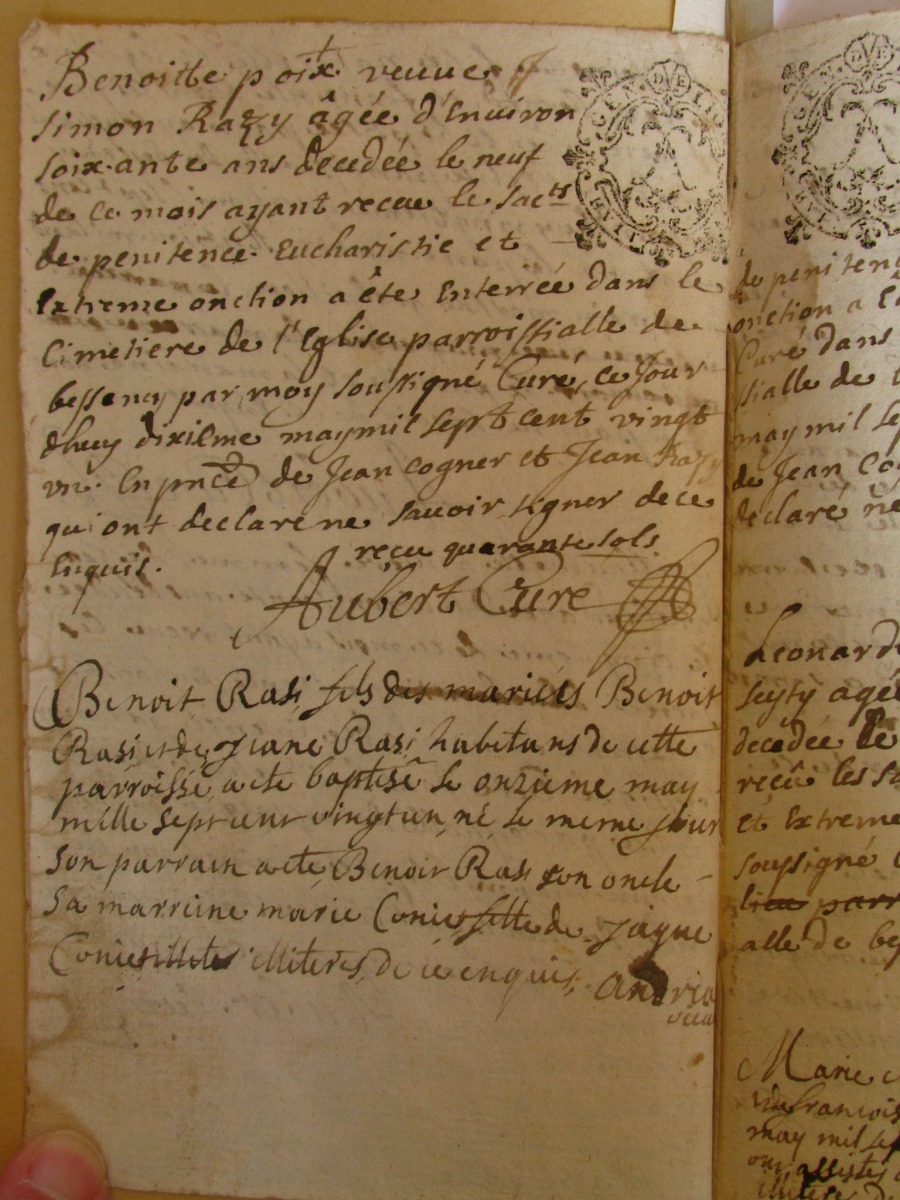 Benoitte poix veuve
Simon Razy âgée d'Environ
soixante ans decedée le neuf
de ce mois ayant recue le sacts
de penitence Eucharistie et
Extreme onction a éte Enterrée dans le
Cimetiere de l'Eglise parroissialle de
bessenay par moy soussigné Curé, ce Jour
dhuy dixième may mil sept cent vingt
vn. En pnce de Jean cogner et Jean Razy
qui ont declaré ne sauoir signer de ce
Enquis.
recu quarante sols
Aubert Curé
Benoit Rasi fils des mariés Benoit
Rasi et de Jeane Rasi habitans de cette
parroisse a ete baptisé le onzieme may
mille sept cent vingt un, né le meme jour
son parrain a eté Benoit Rasi son oncle
sa marreine marie Conie fille de Jaque
Conie illiteres, de ce enquis,
de peniten
onction a
Curé dans
ssialle de
may mil se
de Jean Co
declaré ne
Leonard
seyty agée
decedée le
recû les sa
et Extreme
soussigné
lieu parr
alle de be
Marie
françois
may mil se